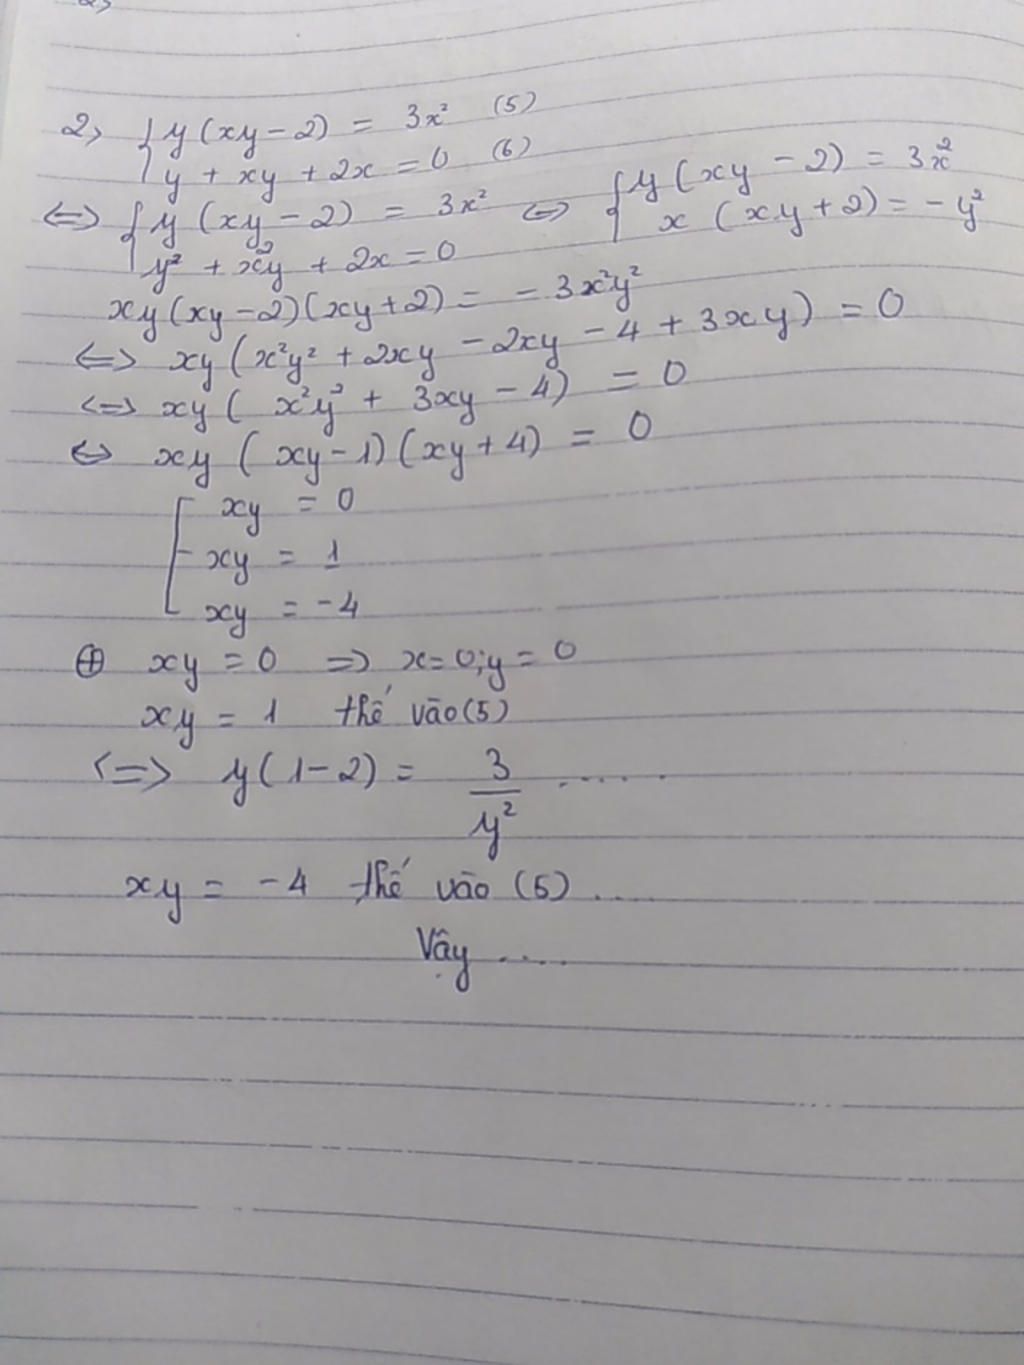 2) { y(xy - 2) = 3x² (5)
y + xy + 2x = 0 (6)
<=> { y(xy - 2) = 3x² <=> { y(xy - 2) = 3x²
y² + x²y + 2x = 0 x(xy + 2) = -y²
xy(xy - 2)(xy + 2) = -3x²y²
<=> xy(x²y² + 2xy - 2xy - 4 + 3xy) = 0
<=> xy(x²y² + 3xy - 4) = 0
<=> xy(xy - 1)(xy + 4) = 0
[ xy = 0
xy = 1
xy = -4
⊕ xy = 0 => x = 0; y = 0
xy = 1 thế vào (5)
<=> y(1 - 2) = 3/y² .....
xy = -4 thế vào (5) ....
Vậy ....